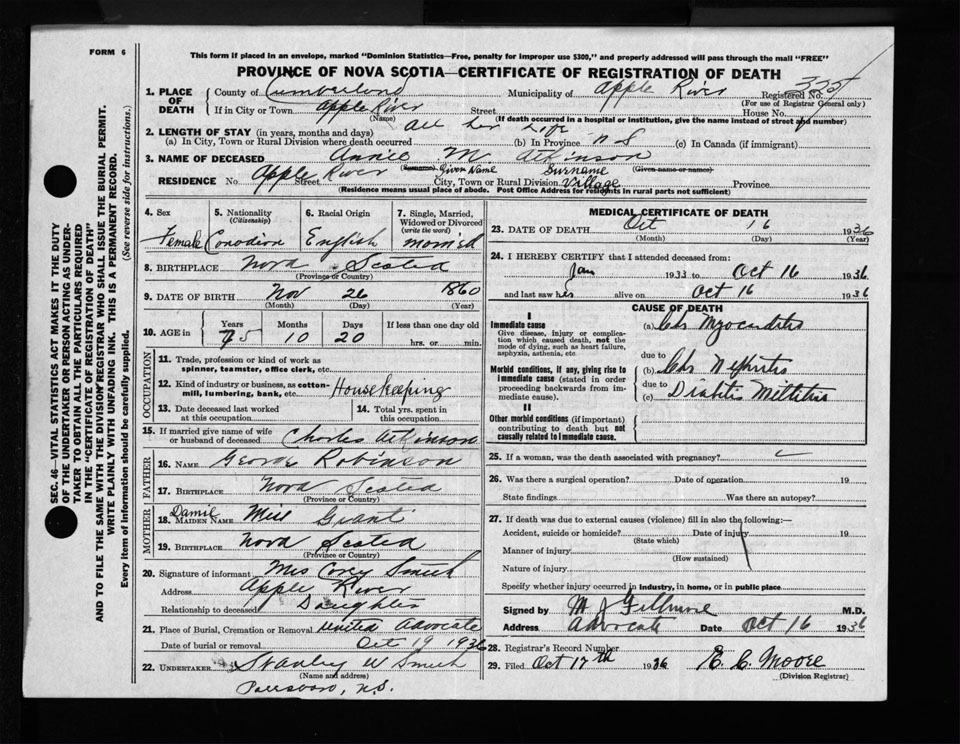 FORM 6
This form if placed in an envelope, marked "Dominion Statistics—Free, penalty for improper use $300," and properly addressed will pass through the mail "FREE"
PROVINCE OF NOVA SCOTIA—CERTIFICATE OF REGISTRATION OF DEATH
1. PLACE OF DEATH County of Cumberland Municipality of Apple River Registered No. 325
(For use of Registrar General only)
If in City or Town Apple River Street House No.
(Name) (If death occurred in a hospital or institution, give the name instead of street and number)
2. LENGTH OF STAY (in years, months and days) all her life
(a) In City, Town or Rural Division where death occurred (b) In Province N S (c) In Canada (if immigrant)
3. NAME OF DECEASED Annie M. Atkinson
(Surname) Given Name Surname (Given name or names)
RESIDENCE No. Apple River Street City, Town or Rural Division Village Province
(Residence means usual place of abode. Post Office Address for residents in rural parts not sufficient)
4. Sex Female
5. Nationality (Citizenship) Canadian
6. Racial Origin English
7. Single, Married, Widowed or Divorced (write the word) married
8. BIRTHPLACE Nova Scotia
(Province or Country)
9. DATE OF BIRTH Nov 26 1860
(Month) (Day) (Year)
10. AGE in Years 75 Months 10 Days 20 If less than one day old hrs. or min.
OCCUPATION
11. Trade, profession or kind of work as spinner, teamster, office clerk, etc.
12. Kind of industry or business, as cotton-mill, lumbering, bank, etc. Housekeeping
13. Date deceased last worked at this occupation
14. Total yrs. spent in this occupation
15. If married give name of wife or husband of deceased Charles Atkinson
FATHER
16. NAME George Robinson
17. BIRTHPLACE Nova Scotia
(Province or Country)
MOTHER
18. MAIDEN NAME Miss Grant
19. BIRTHPLACE Nova Scotia
(Province or Country)
20. Signature of informant Mrs Corey Smith
Address Apple River
Relationship to deceased Daughter
21. Place of Burial, Cremation or Removal United Advocate
Date of burial or removal Oct 19 1936
22. UNDERTAKER Stanley W Smith
(Name and address)
Parrsboro, N.S.
MEDICAL CERTIFICATE OF DEATH
23. DATE OF DEATH Oct 16 1936
(Month) (Day) (Year)
24. I HEREBY CERTIFY that I attended deceased from:
Jan 1933 to Oct 16 1936
and last saw her alive on Oct 16 1936
CAUSE OF DEATH
I
Immediate cause
Give disease, injury or complication which caused death, not the mode of dying, such as heart failure, asphyxia, asthenia, etc
(a) Chr Myocarditis
due to
Morbid conditions, if any, giving rise to immediate cause (stated in order proceeding backwards from immediate cause).
(b) Chr Nephritis
due to
(c) Diabitis Millitus
II
Other morbid conditions (if important) contributing to death but not causally related to immediate cause.
25. If a woman, was the death associated with pregnancy?
26. Was there a surgical operation? Date of operation 19
State findings Was there an autopsy?
27. If death was due to external causes (violence) fill in also the following:—
Accident, suicide or homicide? Date of injury 19
(State which)
Manner of injury
(How sustained)
Nature of injury
Specify whether injury occurred in industry, in home, or in public place
Signed by M J Fillmore M.D.
Address Advocate Date Oct 16 1936
28. Registrar's Record Number
29. Filed Oct 17th 1936 E. C. Moore
(Division Registrar)
SEC. 46—VITAL STATISTICS ACT MAKES IT THE DUTY
OF THE UNDERTAKER OR PERSON ACTING AS UNDER-
TAKER TO OBTAIN ALL THE PARTICULARS REQUIRED
IN THE "CERTIFICATE OF REGISTRATION OF DEATH"
AND TO FILE THE SAME WITH THE DIVISION REGISTRAR WHO SHALL ISSUE THE BURIAL PERMIT.
WRITE PLAINLY WITH UNFADING INK. THIS IS A PERMANENT RECORD.
Every item of information should be carefully supplied. (See reverse side for instructions.)